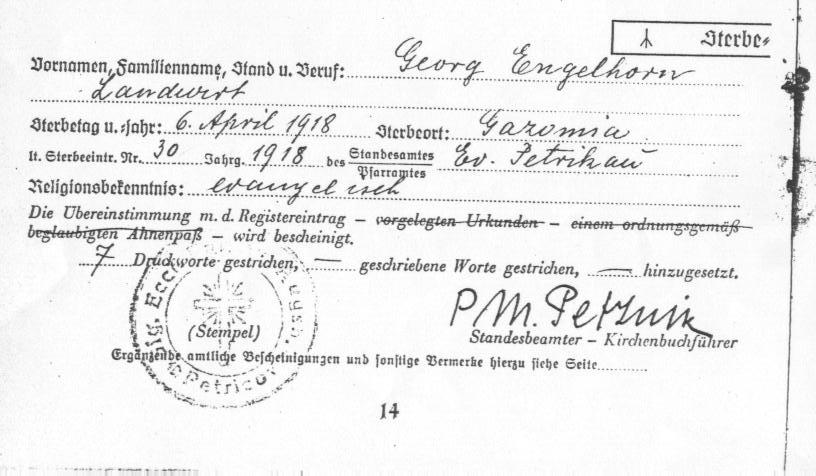 Sterbe=
Vornamen, Familienname, Stand u. Beruf: Georg Engelhorn
Landwirt
Sterbetag u. =jahr: 6. April 1918 Sterbeort: Gazomia
lt. Sterbeeintr. Nr. 30 Jahrg. 1918 des Standesamtes Pfarramtes Ev. Petrikau
Religionsbekenntnis: evangelisch
Die Übereinstimmung m. d. Registereintrag – vorgelegten Urkunden – einem ordnungsgemäß
beglaubigten Ahnenpaß – wird bescheinigt.
7 Druckworte gestrichen, — geschriebene Worte gestrichen, — hinzugesetzt.
(Stempel)
P M. Petznik
Standesbeamter – Kirchenbuchführer
Ergänzende amtliche Bescheinigungen und sonstige Vermerke hierzu siehe Seite
14